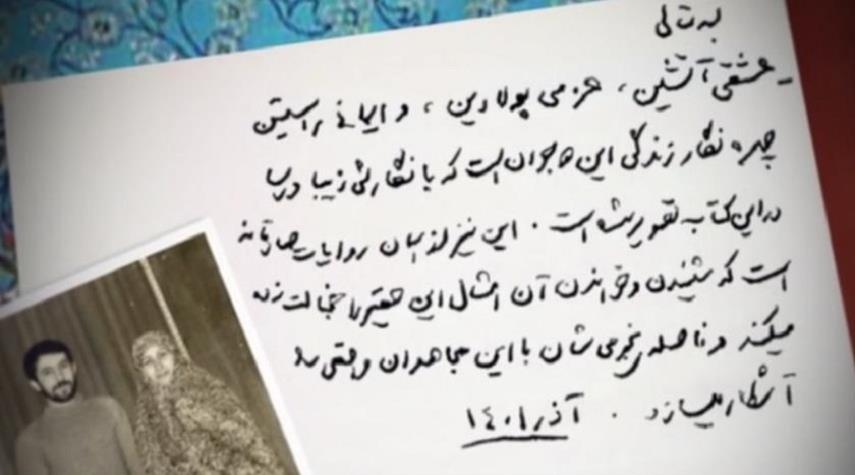 بسمه تعالی
- عشقی آتشین، عزمی پولادین، و ایمانی راستین
چهره نگار زندگی این دو جوان است که با نگارشی زیبا و رسا
در این کتاب تصویر شده است. این نیز از همان روایات صادقانه
است که شنیدن و خواندن آن امثال این حقیر را خجالت زده
میکند و فاصله‌ی نجومی شان با این مجاهدان واقعی را
آشکار میسازد. آذر ۱۴۰۱